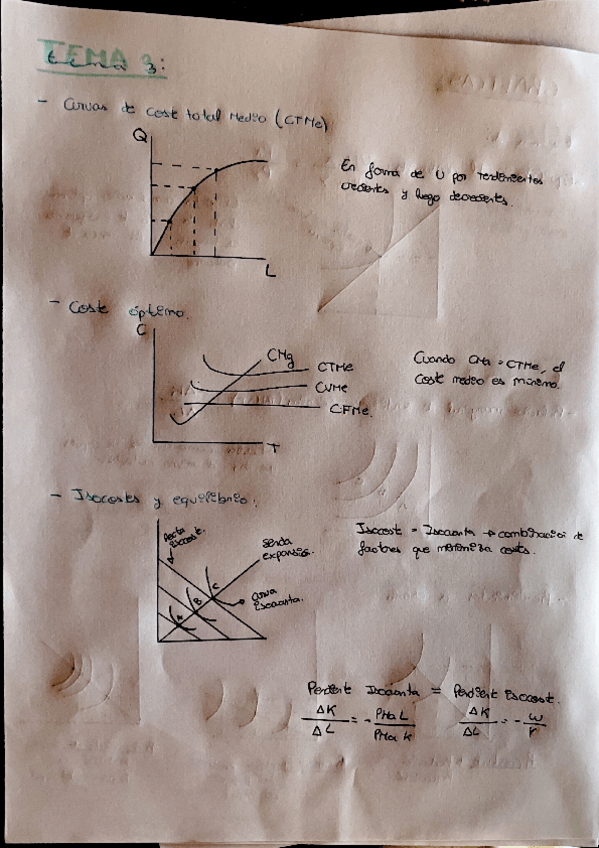 TEMA 3:
- Curvas de coste total Medio (CTMe)
Q
L
En forma de U por rendimientos
crecientes y luego decrecientes.
- Coste óptimo.
C
CMg
CTMe
CVMe
CFMe.
T
Cuando CMa = CTMe, el
Coste medio es mínimo.
- Isocostes y equilibrio:
Recta
isocost.
senda
expansión.
C
B
A
curva
isocuanta.
Isocost = Isocuanta → combinación de
factores que minimiza costs.
Pendient Isocuanta = Pendient isocost.
ΔK/ΔL = - PMa L/PMa K   ΔK/ΔL = - w/r